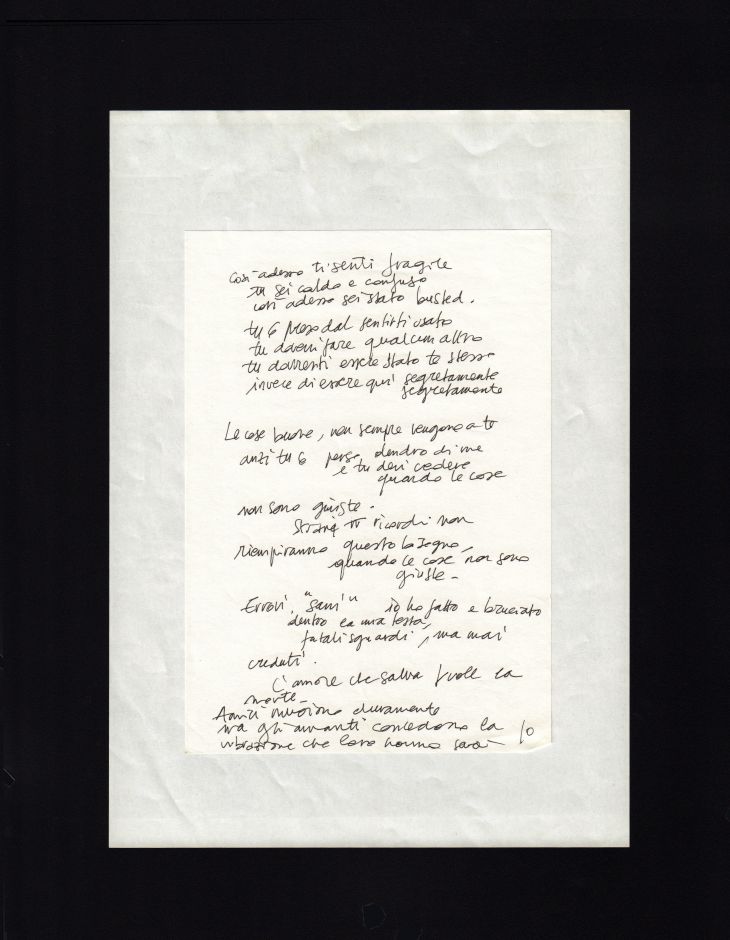 Così adesso ti senti fragile
tu sei caldo e confuso
così adesso sei stato busted.
tu 6 preso dal sentirti usato
tu dovevi fare qualcun altro
tu dovresti essere stato te stesso
invece di essere qui segretamente
segretamente
Le cose buone, non sempre vengono a te
anzi tu 6 perso dendro di me
e tu devi vedere
quando le cose
non sono giuste.
strani tuoi ricordi non
riempiranno questo bisogno,
quando le cose non sono
giuste -
Errori, "sani" io ho fatto e bruciato
dentro la mia testa,
fatali sguardi, ma mai
creduti.
L'amore che salva vuole la
morte -
Amici muoiono duramente
ma gli amanti concedono la
vibrazione che loro hanno
10